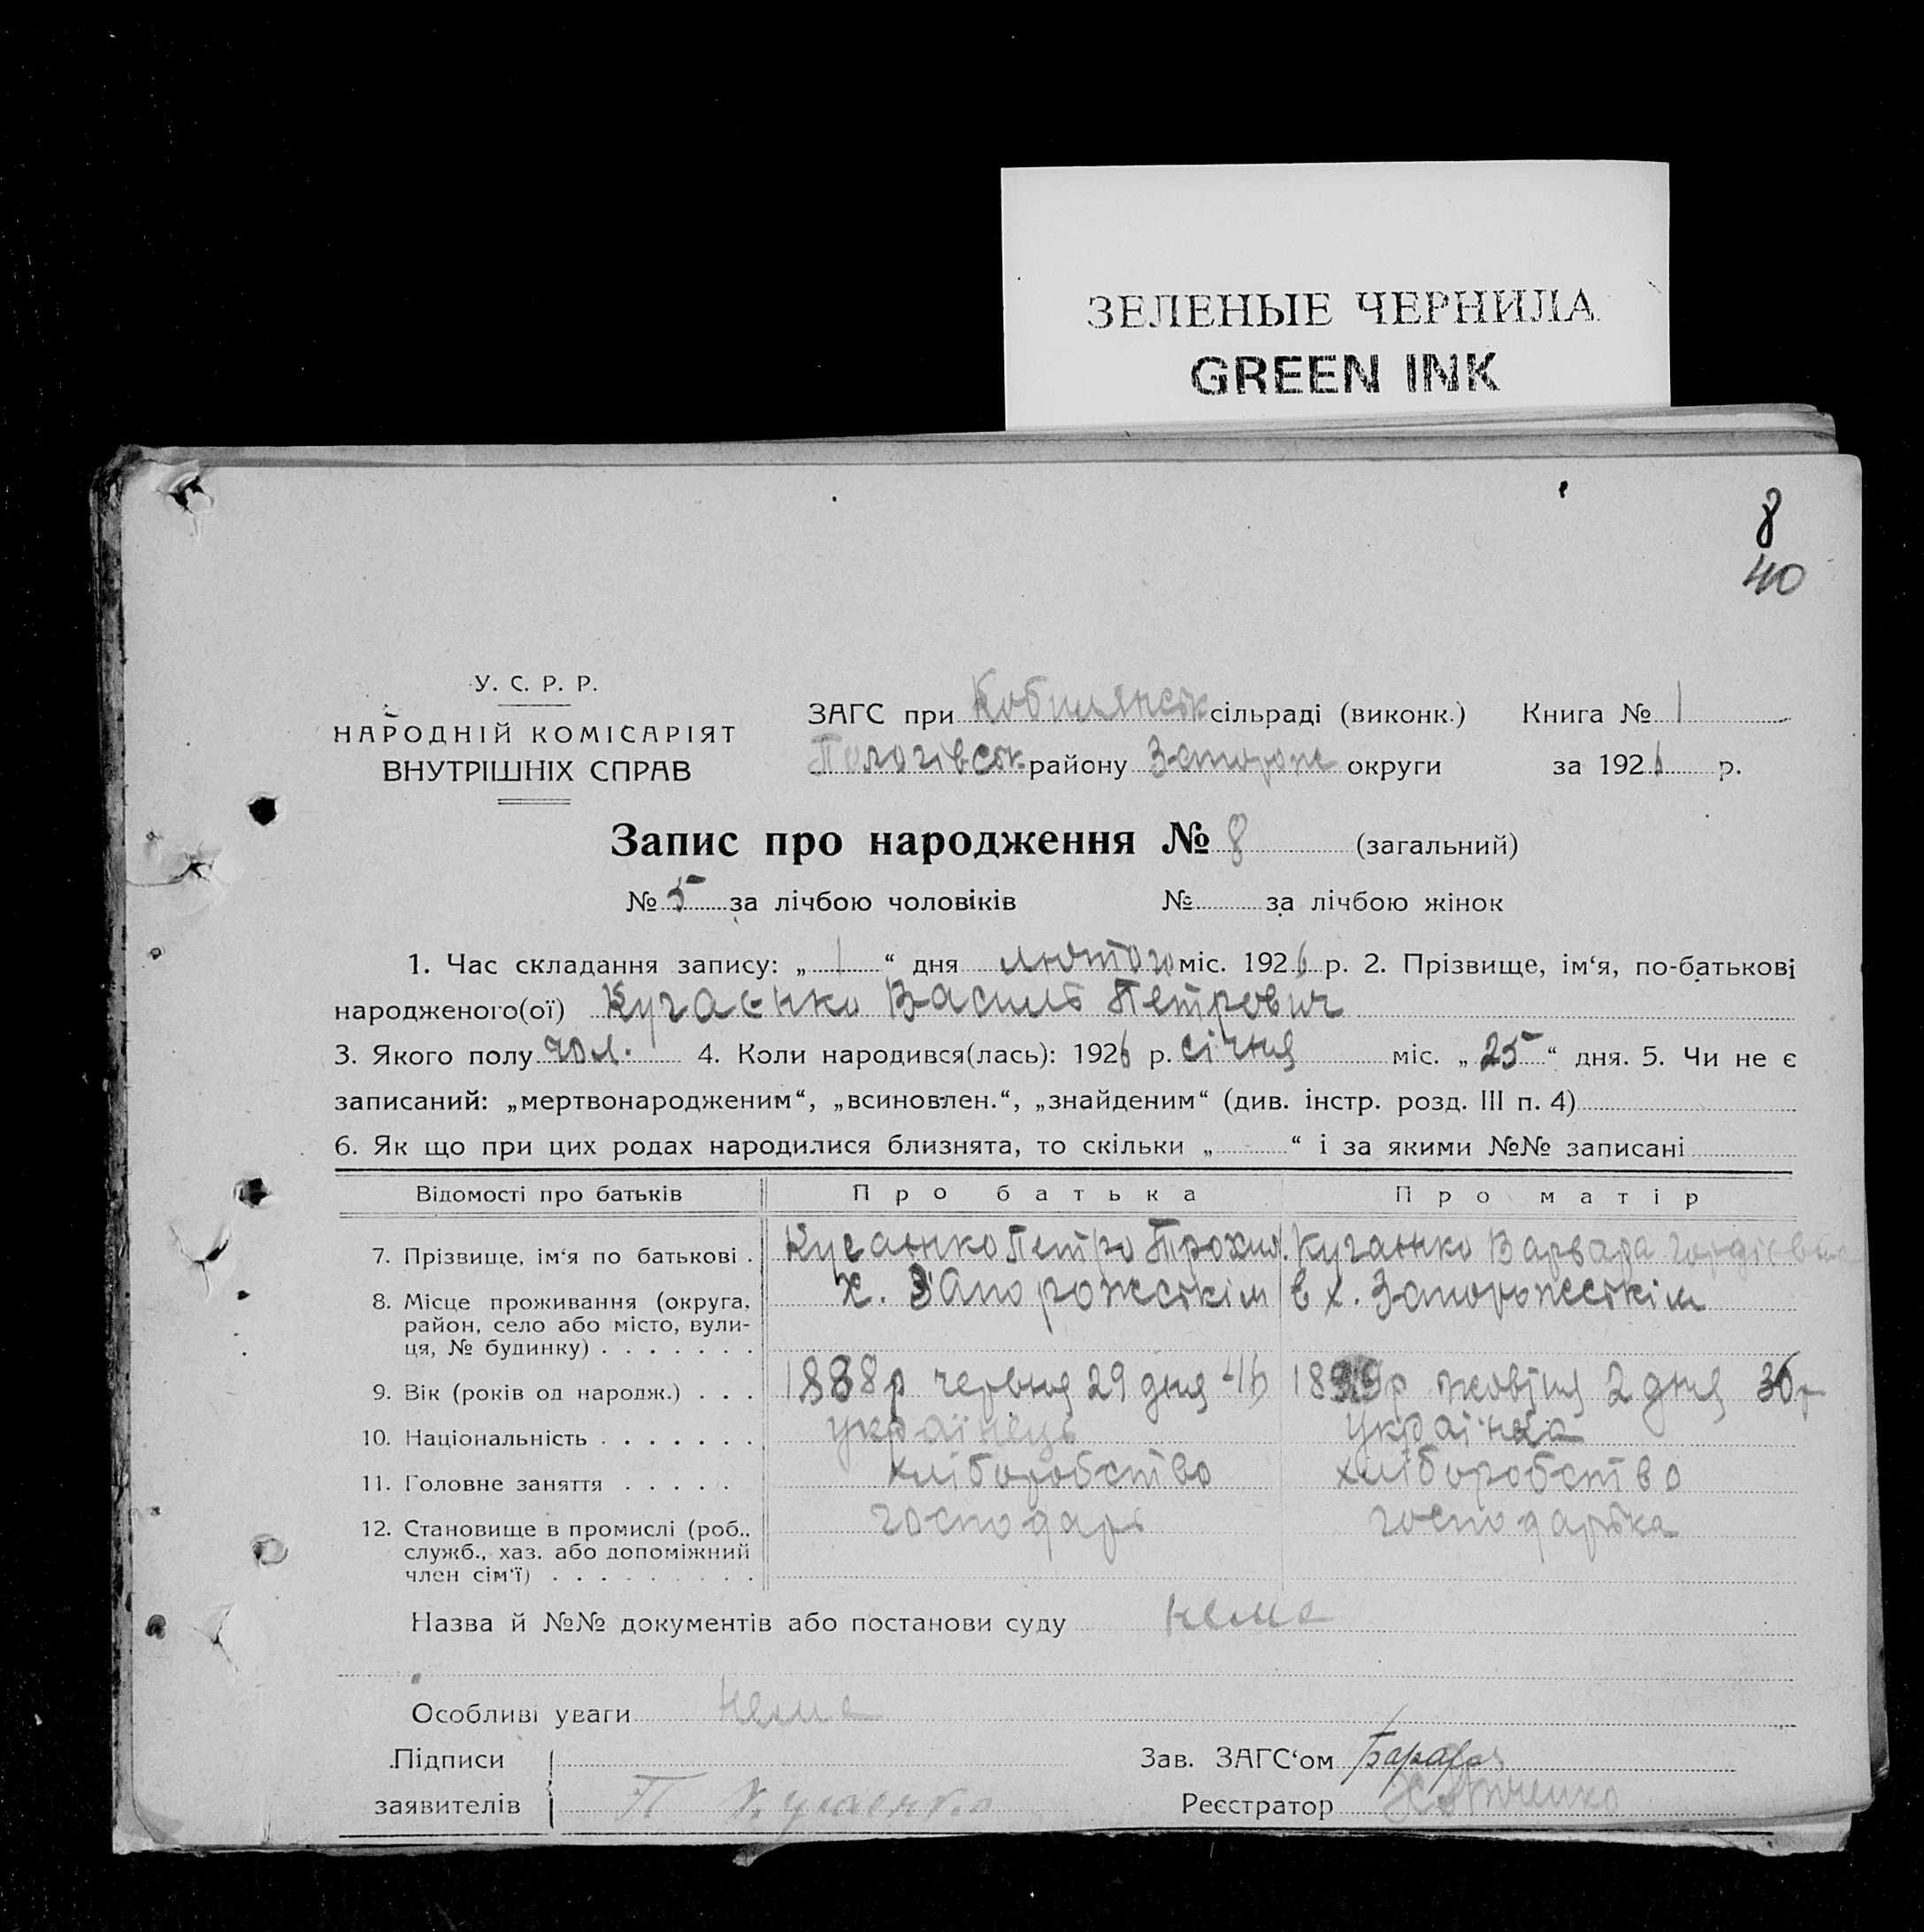 ЗЕЛЕНЫЕ ЧЕРНИЛА
GREEN INK
8
40
У. С. Р. Р.
НАРОДНІЙ КОМІСАРІЯТ
ВНУТРІШНІХ СПРАВ
ЗАГС при сільраді (виконк.) Книга № 1
Пологівськ району Запорож округи за 1926 р.
Запис про народження № 8 (загальний)
№ 5 за лічбою чоловіків № за лічбою жінок
1. Час складання запису: „ 1 “ дня лютого міс. 1926 р. 2. Прізвище, ім‘я, по-батькові
народженого(ої) Кугаєнко Василь Петрович
3. Якого полу чол. 4. Коли народився(лась): 1926 р. січня міс. „ 25 “ дня. 5. Чи не є
записаний: „мертвонародженим“, „всиновлен.“, „знайденим“ (див. інстр. розд. III п. 4)
6. Як що при цих родах народилися близнята, то скільки „ “ і за якими №№ записані
Відомості про батьків Про батька Про матір
7. Прізвище, ім‘я по батькові . Кугаєнко Петро Кугаєнко Варвара Гордієвна
8. Місце проживання (округа, х. Запорожськім в х. Запорожськім
район, село або місто, вули-
ця, № будинку) . . . . . . .
9. Вік (років од народж.) . . . червня 29 дня жовтня 2 дня
10. Національність . . . . . . . українець українка
11. Головне заняття . . . . . хліборобство хліборобство
12. Становище в промислі (роб., господарь господарька
служб., хаз. або допоміжний
член сім‘ї) . . . . . . . . .
Назва й №№ документів або постанови суду нема
Особливі уваги нема
Підписи Зав. ЗАГС‘ом
заявителів П Кугаєнко Реєстратор